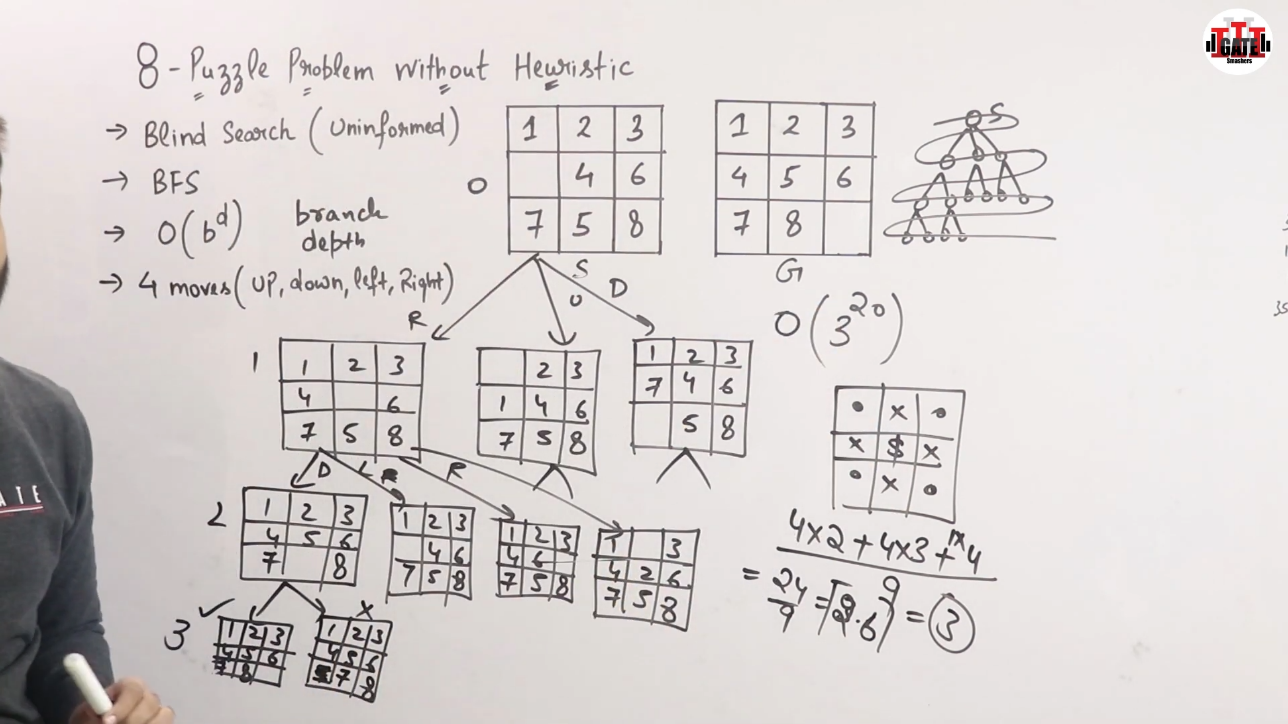 8-Puzzle Problem without Heuristic
→ Blind Search (Uninformed)
→ BFS
→ O(b^d) branch
depth
→ 4 moves (UP, down, left, Right)
0
1 2 3
4 6
7 5 8
S
1 2 3
4 5 6
7 8
G
S
O(3^20)
R
U
D
1
1 2 3
4 6
7 5 8
2 3
1 4 6
7 5 8
1 2 3
7 4 6
5 8
D
L
R
2
1 2 3
4 5 6
7 8
1 2 3
4 6
7 5 8
1 2 3
4 6
7 5 8
1 3
4 2 6
7 5 8
3
✓
1 2 3
4 5 6
7 8
x
1 2 3
4 5 6
7 8
• x •
x $ x
• x •
4x2 + 4x3 + 1x4
9
= 24/9 = = 3
GATE
Smashers
ATE